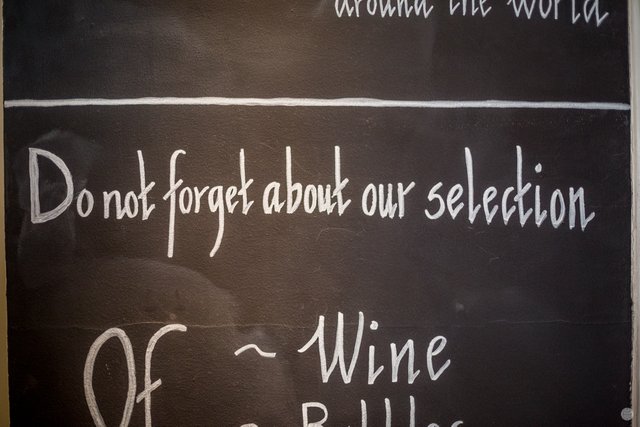 around the world
Do not forget about our selection
Of ~ Wine